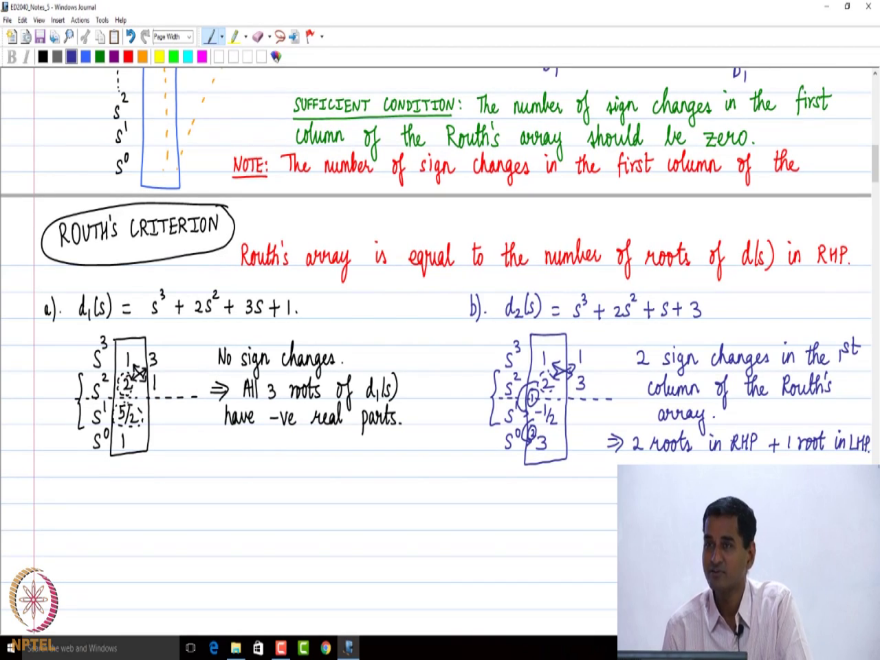 ED2040_Notes_5 - Windows Journal
File Edit View Insert Actions Tools Help
Page Width
B I
S²
S¹
S⁰
SUFFICIENT CONDITION: The number of sign changes in the first
column of the Routh's array should be zero.
NOTE: The number of sign changes in the first column of the
ROUTH'S CRITERION
Routh's array is equal to the number of roots of d(s) in RHP.
a). d₁(s) = s³ + 2s² + 3s + 1.
S³ 1 3
S² 2 1
S¹ 5/2
S⁰ 1
No sign changes.
⇒ All 3 roots of d₁(s)
have -ve real parts.
b). d₂(s) = s³ + 2s² + s + 3
S³ 1 1
S² 2 3
S¹ -1/2
S⁰ 3
1
2
2 sign changes in the 1st
column of the Routh's
array.
⇒ 2 roots in RHP + 1 root in LHP.
NPTEL
the web and Windows